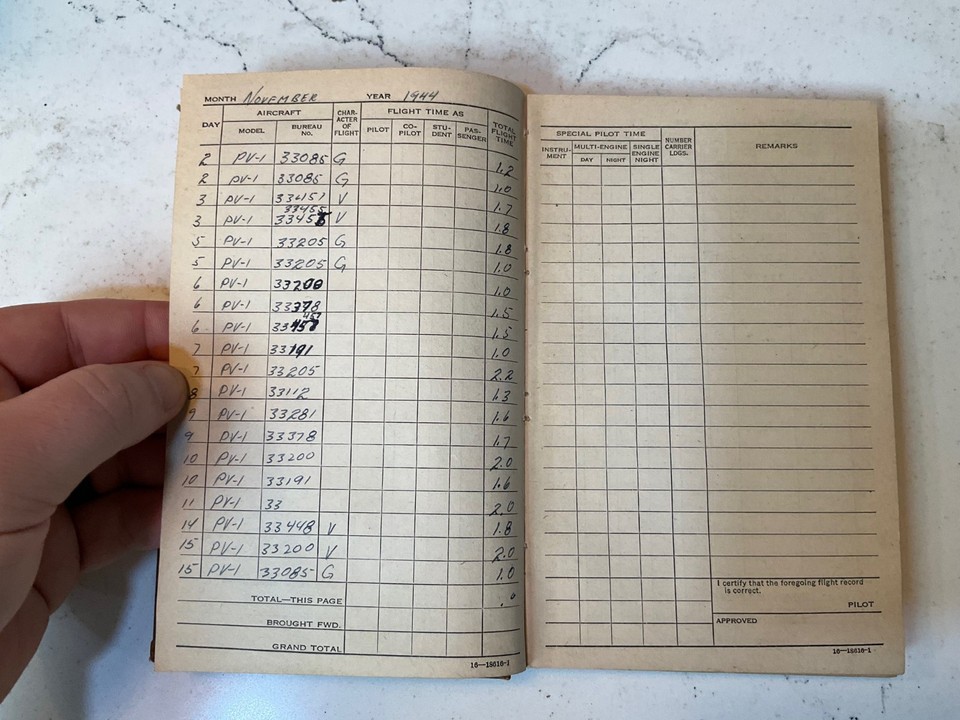 MONTH NOVEMBER YEAR 1944
DAY AIRCRAFT CHARACTER OF FLIGHT FLIGHT TIME AS TOTAL FLIGHT TIME
MODEL BUREAU NO. PILOT CO-PILOT STUDENT PASSENGER
2 PV-1 33085 G 1.2
2 PV-1 33085 G 1.0
3 PV-1 33451 V 1.7
33455
3 PV-1 V 1.8
5 PV-1 33205 G 1.8
5 PV-1 33205 G 1.0
6 PV-1 33200 1.0
6 PV-1 33378 1.5
457
6 PV-1 1.5
7 PV-1 33191 1.0
7 PV-1 33205 2.2
8 PV-1 33112 1.3
9 PV-1 33281 1.6
9 PV-1 33378 1.7
10 PV-1 33200 2.0
10 PV-1 33191 1.6
11 PV-1 33 2.0
14 PV-1 33448 V 1.8
15 PV-1 33200 V 2.0
15 PV-1 33085 G 1.0
TOTAL—THIS PAGE
BROUGHT FWD.
GRAND TOTAL
16—18616-1
SPECIAL PILOT TIME NUMBER CARRIER LDGS. REMARKS
INSTRUMENT MULTI-ENGINE SINGLE ENGINE NIGHT
DAY NIGHT
I certify that the foregoing flight record
is correct.
PILOT
APPROVED
16—18616-1